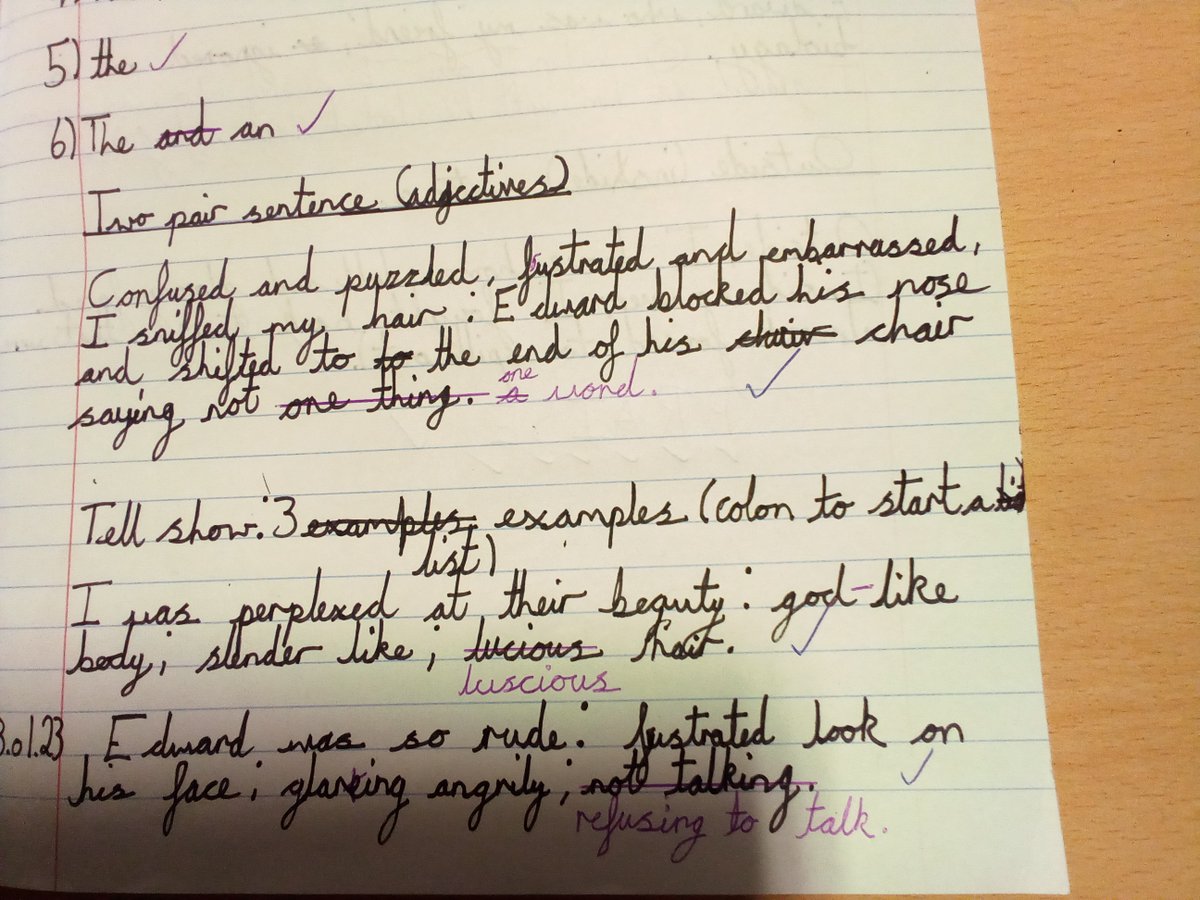 5) the ✓
6) The and an ✓
Two pair sentence (adjectives)
Confused and puzzled, fustrated and embarrassed,
I sniffed my hair : Edward blocked his nose
and shifted to to the end of his chair chair
saying not one thing. a one word.
Tell show: 3 examples, examples (colon to start a
list)
I was perplexed at their beauty : god-like
body; slender like; lucious hair.
luscious
3.01.23 Edward was so rude: fustrated look on
his face; glaring angrily; not talking.
refusing to talk.